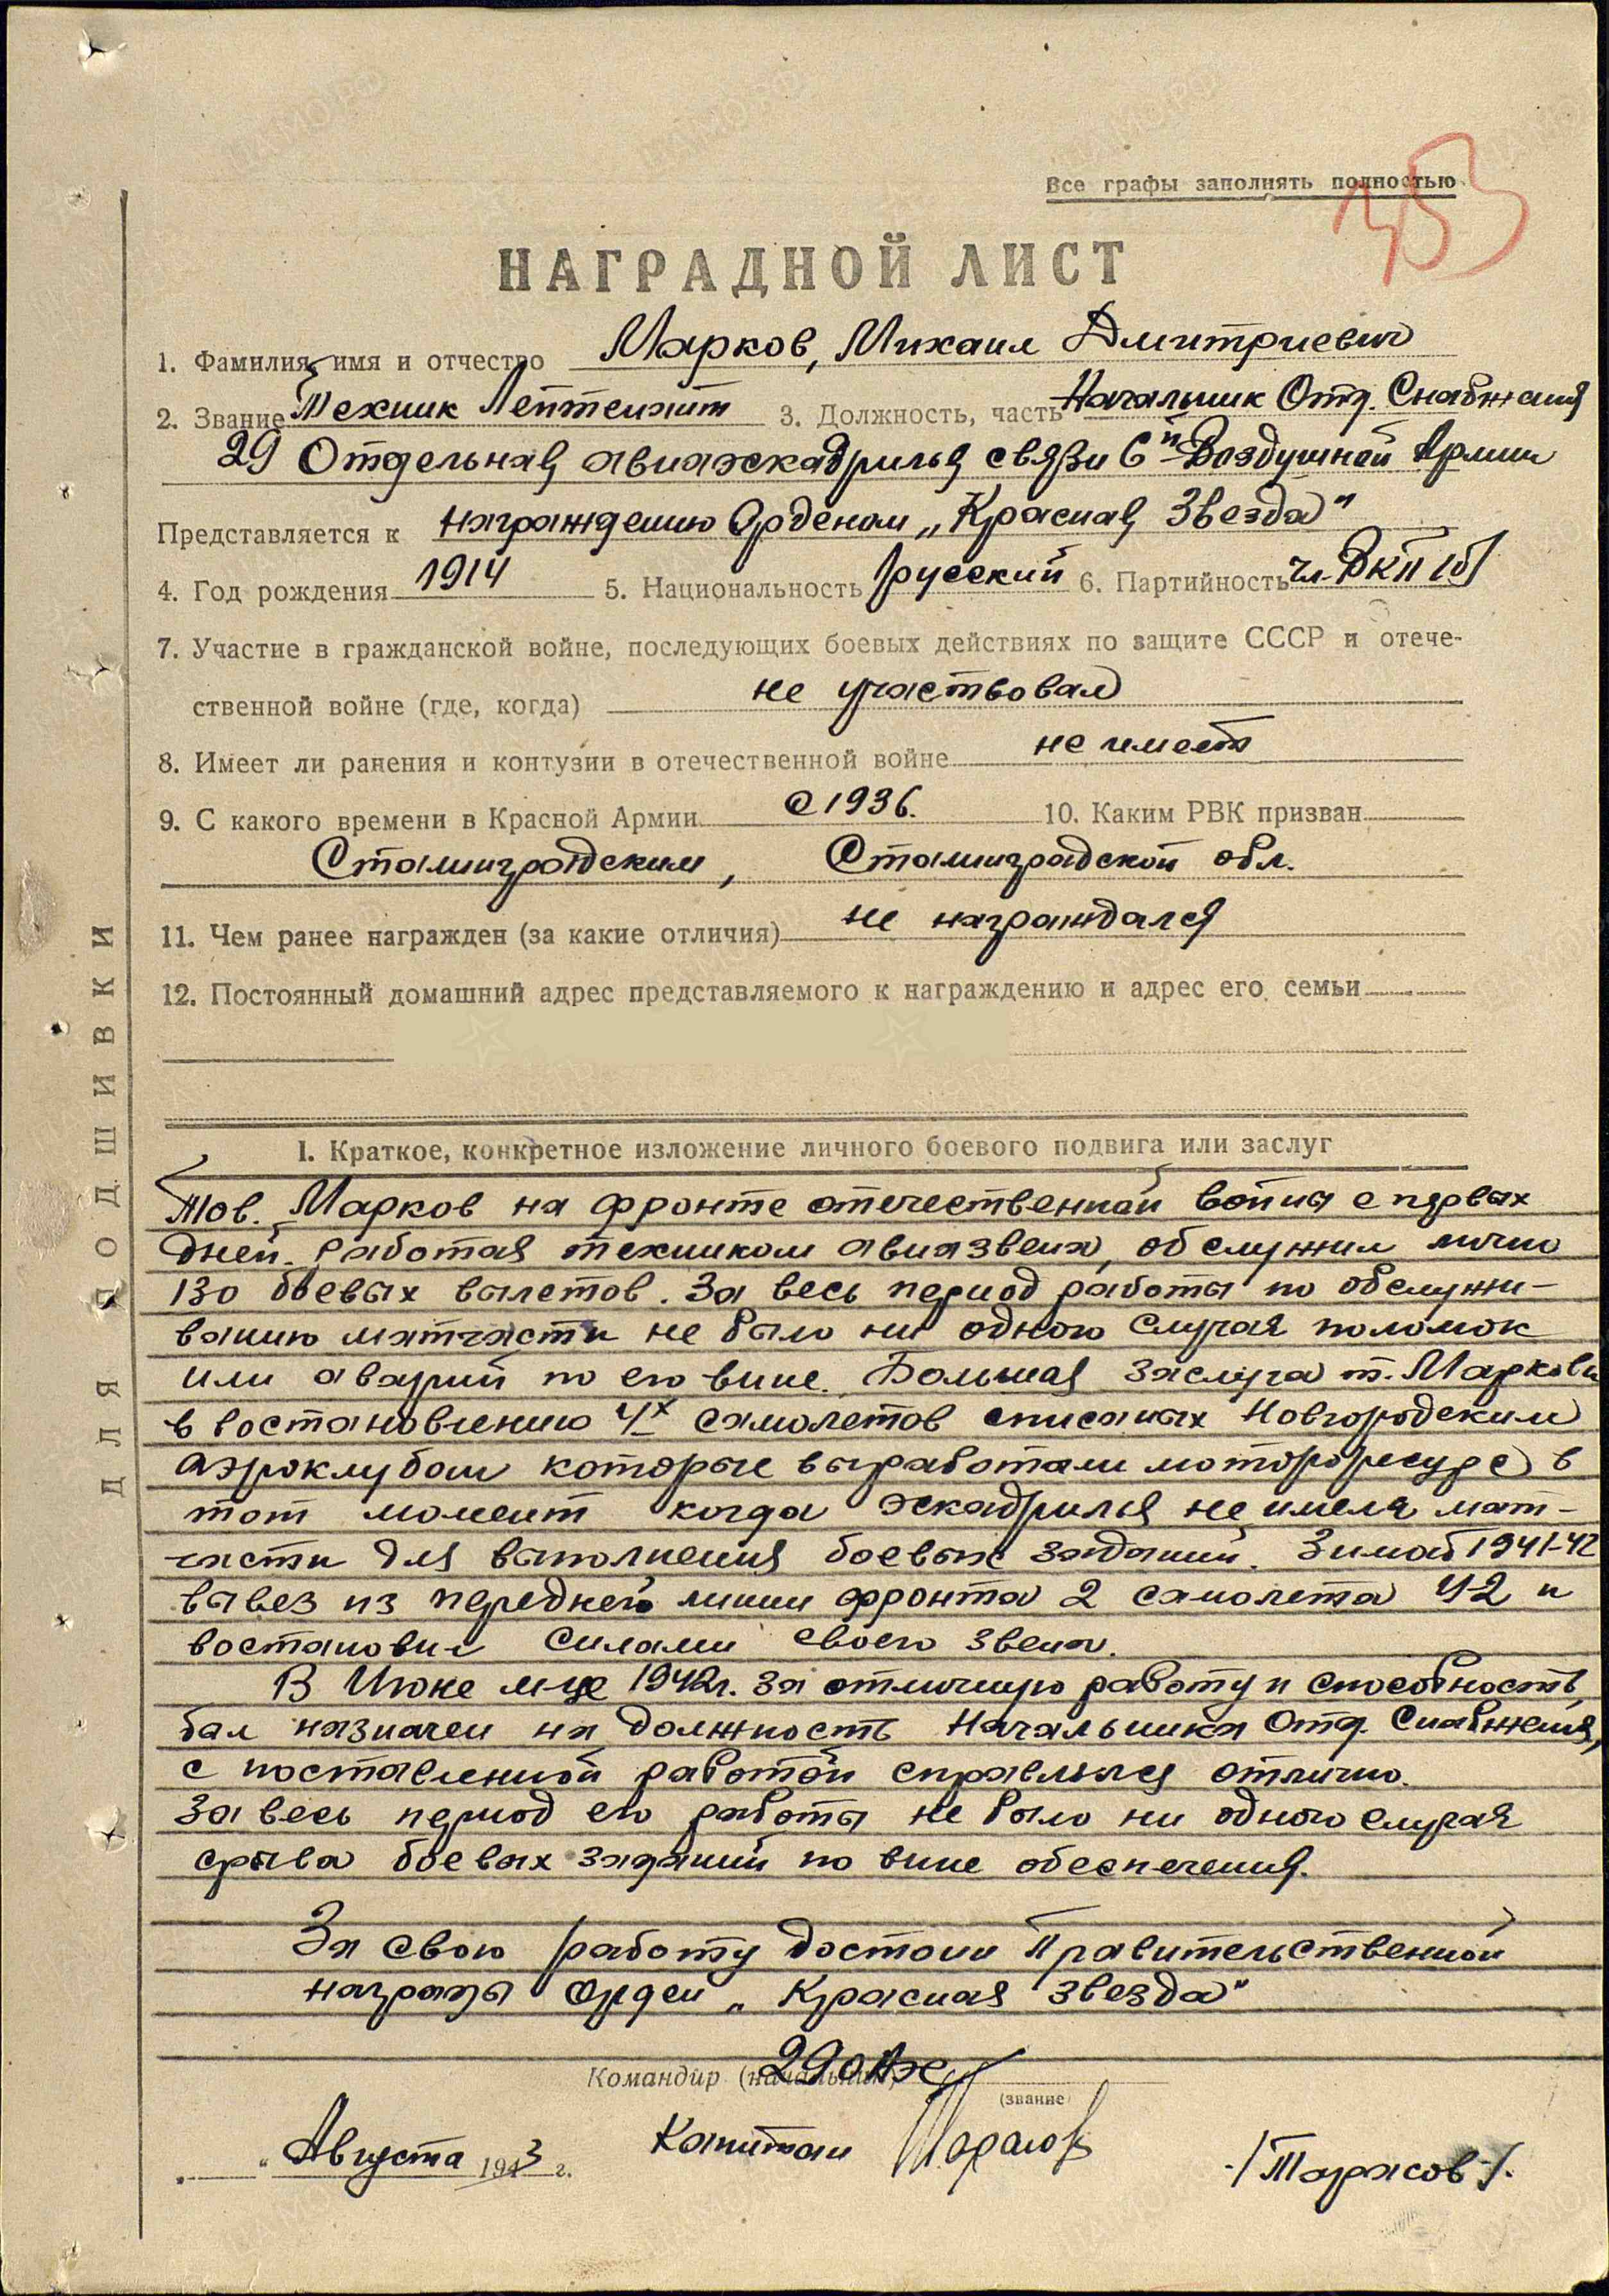 Все графы заполнять полностью
НАГРАДНОЙ ЛИСТ
1. Фамилия, имя и отчество Марков, Михаил Дмитриевич
2. Звание Техник Лейтенант 3. Должность, часть Начальник Отд. Снабжения
29 Отдельная авиаэскадрилья связи 6й Воздушной Армии
Представляется к награждению Орденом „Красная Звезда"
4. Год рождения 1914 5. Национальность русский 6. Партийность чл. ВКП/б/
7. Участие в гражданской войне, последующих боевых действиях по защите СССР и отече-
ственной войне (где, когда) не участвовал
8. Имеет ли ранения и контузии в отечественной войне не имеет
9. С какого времени в Красной Армии с 1936. 10. Каким РВК призван
Сталинградским, Сталинградской обл.
11. Чем ранее награжден (за какие отличия) не награждался
12. Постоянный домашний адрес представляемого к награждению и адрес его семьи
1. Краткое, конкретное изложение личного боевого подвига или заслуг
Тов. Марков на фронте отечественной войны с первых
дней. Работая техником авиазвена, обслужил лично
130 боевых вылетов. За весь период работы по обслужи-
ванию матчасти не было ни одного случая поломок
или аварий по его вине. Большая заслуга т. Маркова
в востановлению 4х самолетов списаных Новгородским
аэроклубом которые выработали моторресурс в
тот момент когда эскадрилья не имела мат-
части для выполнения боевых заданий. Зимой 1941-42
вывез из передней линии фронта 2 самолета У-2 и
востановил силами своего звена.
В Июне м-це 1942г. за отличную работу и способность,
был назначен на должность Начальника Отд. Снабжения,
с поставленной работой справлялся отлично.
За весь период его работы не было ни одного случая
срыва боевых заданий по вине обеспечения.
За свою работу достоин Правительственной
награды орден „Красная звезда"
Командир (начальник) 29 оАэс
(звание)
Капитан
" Августа 1943 г.
/Тарасов/.
ДЛЯ ПОДШИВКИ